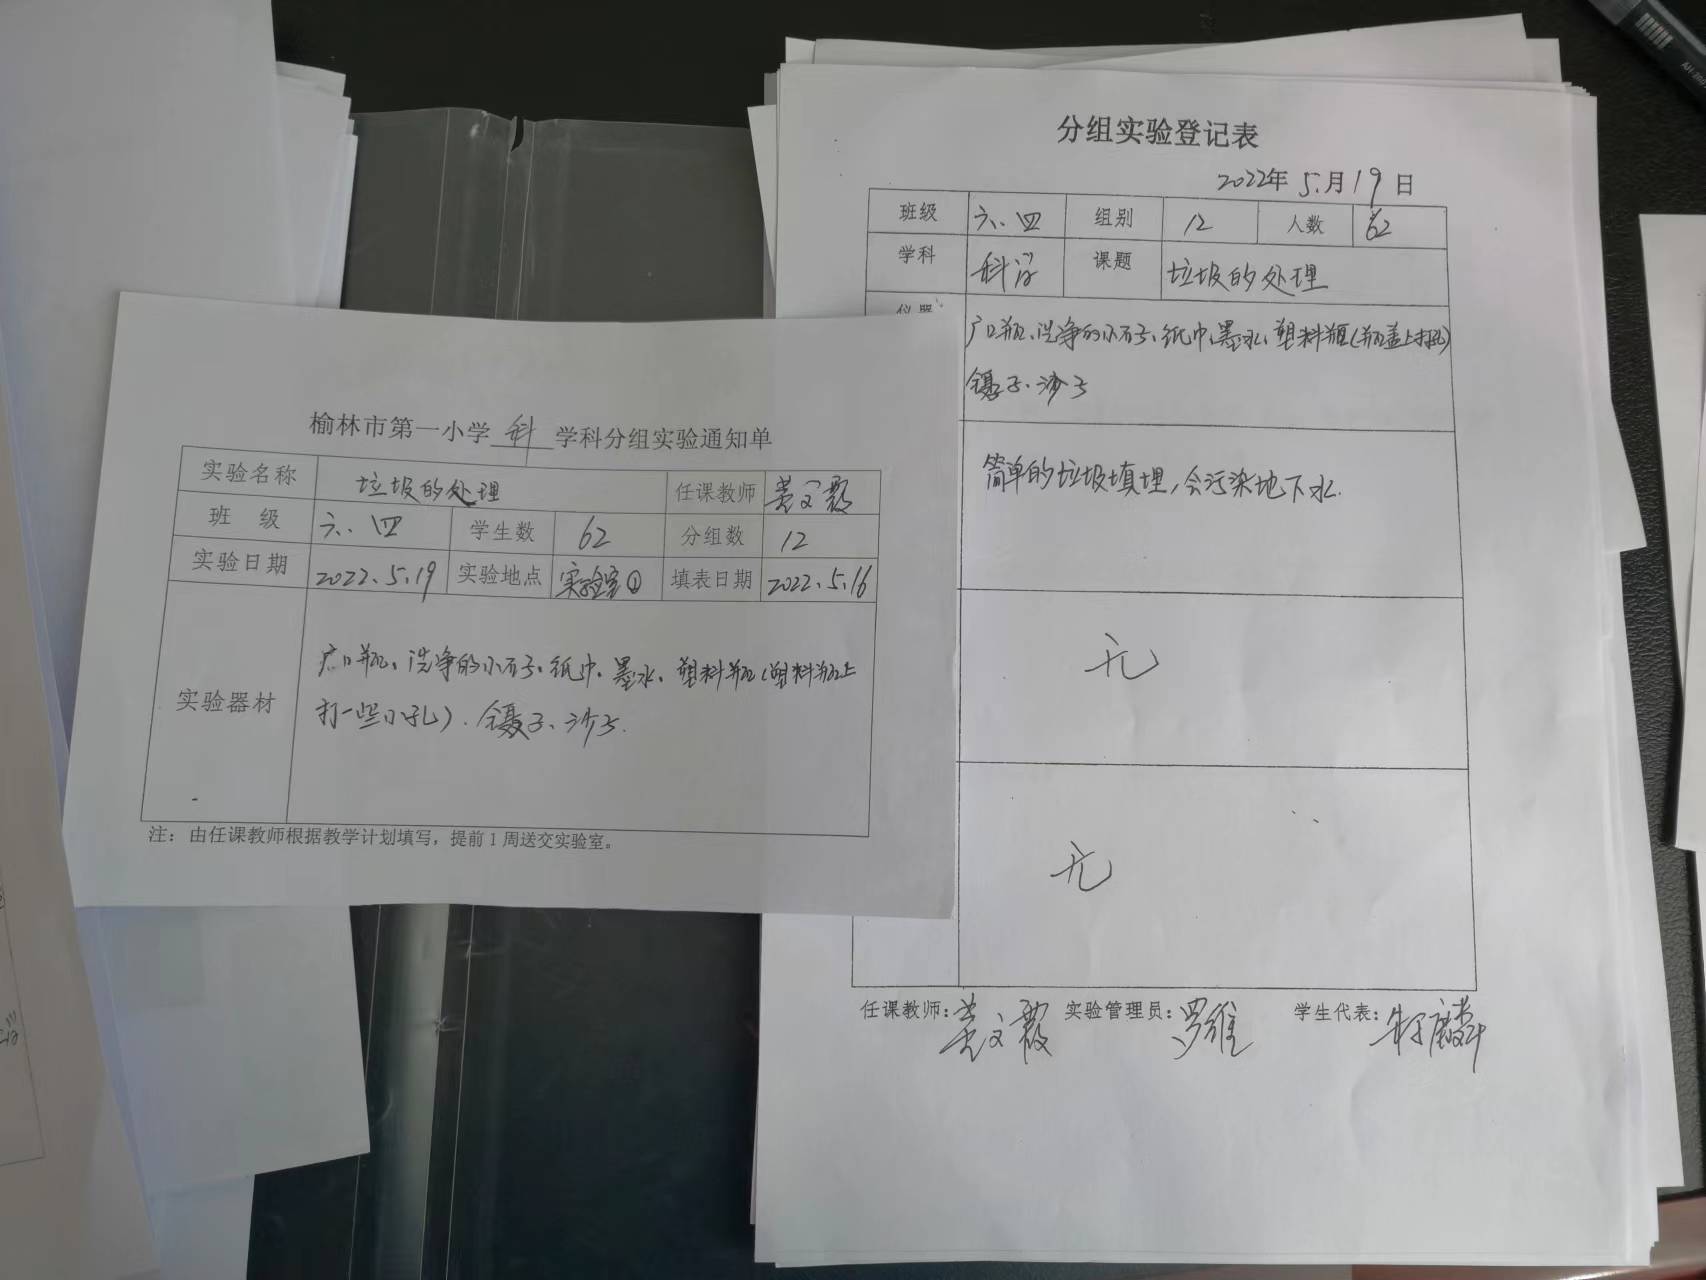 榆林市第一小学 科 学科分组实验通知单
实验名称 垃圾的处理 任课教师 黄文霞
班 级 六、四 学生数 62 分组数 12
实验日期 2022.5.19 实验地点 实验室① 填表日期 2022.5.16
实验器材
广口瓶、洗净的小石子、纸巾、墨水、塑料瓶(塑料瓶上
打一些小孔)、镊子、沙子.
注：由任课教师根据教学计划填写，提前1周送交实验室。
分组实验登记表
2022年 5月19日
班级 六、四 组别 12 人数 62
学科 科学 课题 垃圾的处理
仪器
广口瓶、洗净的小石子、纸巾、墨水、塑料瓶(瓶盖上打孔)
镊子、沙子
简单的垃圾填埋,会污染地下水.
无
无
任课教师: 黄文霞 实验管理员: 罗维 学生代表: